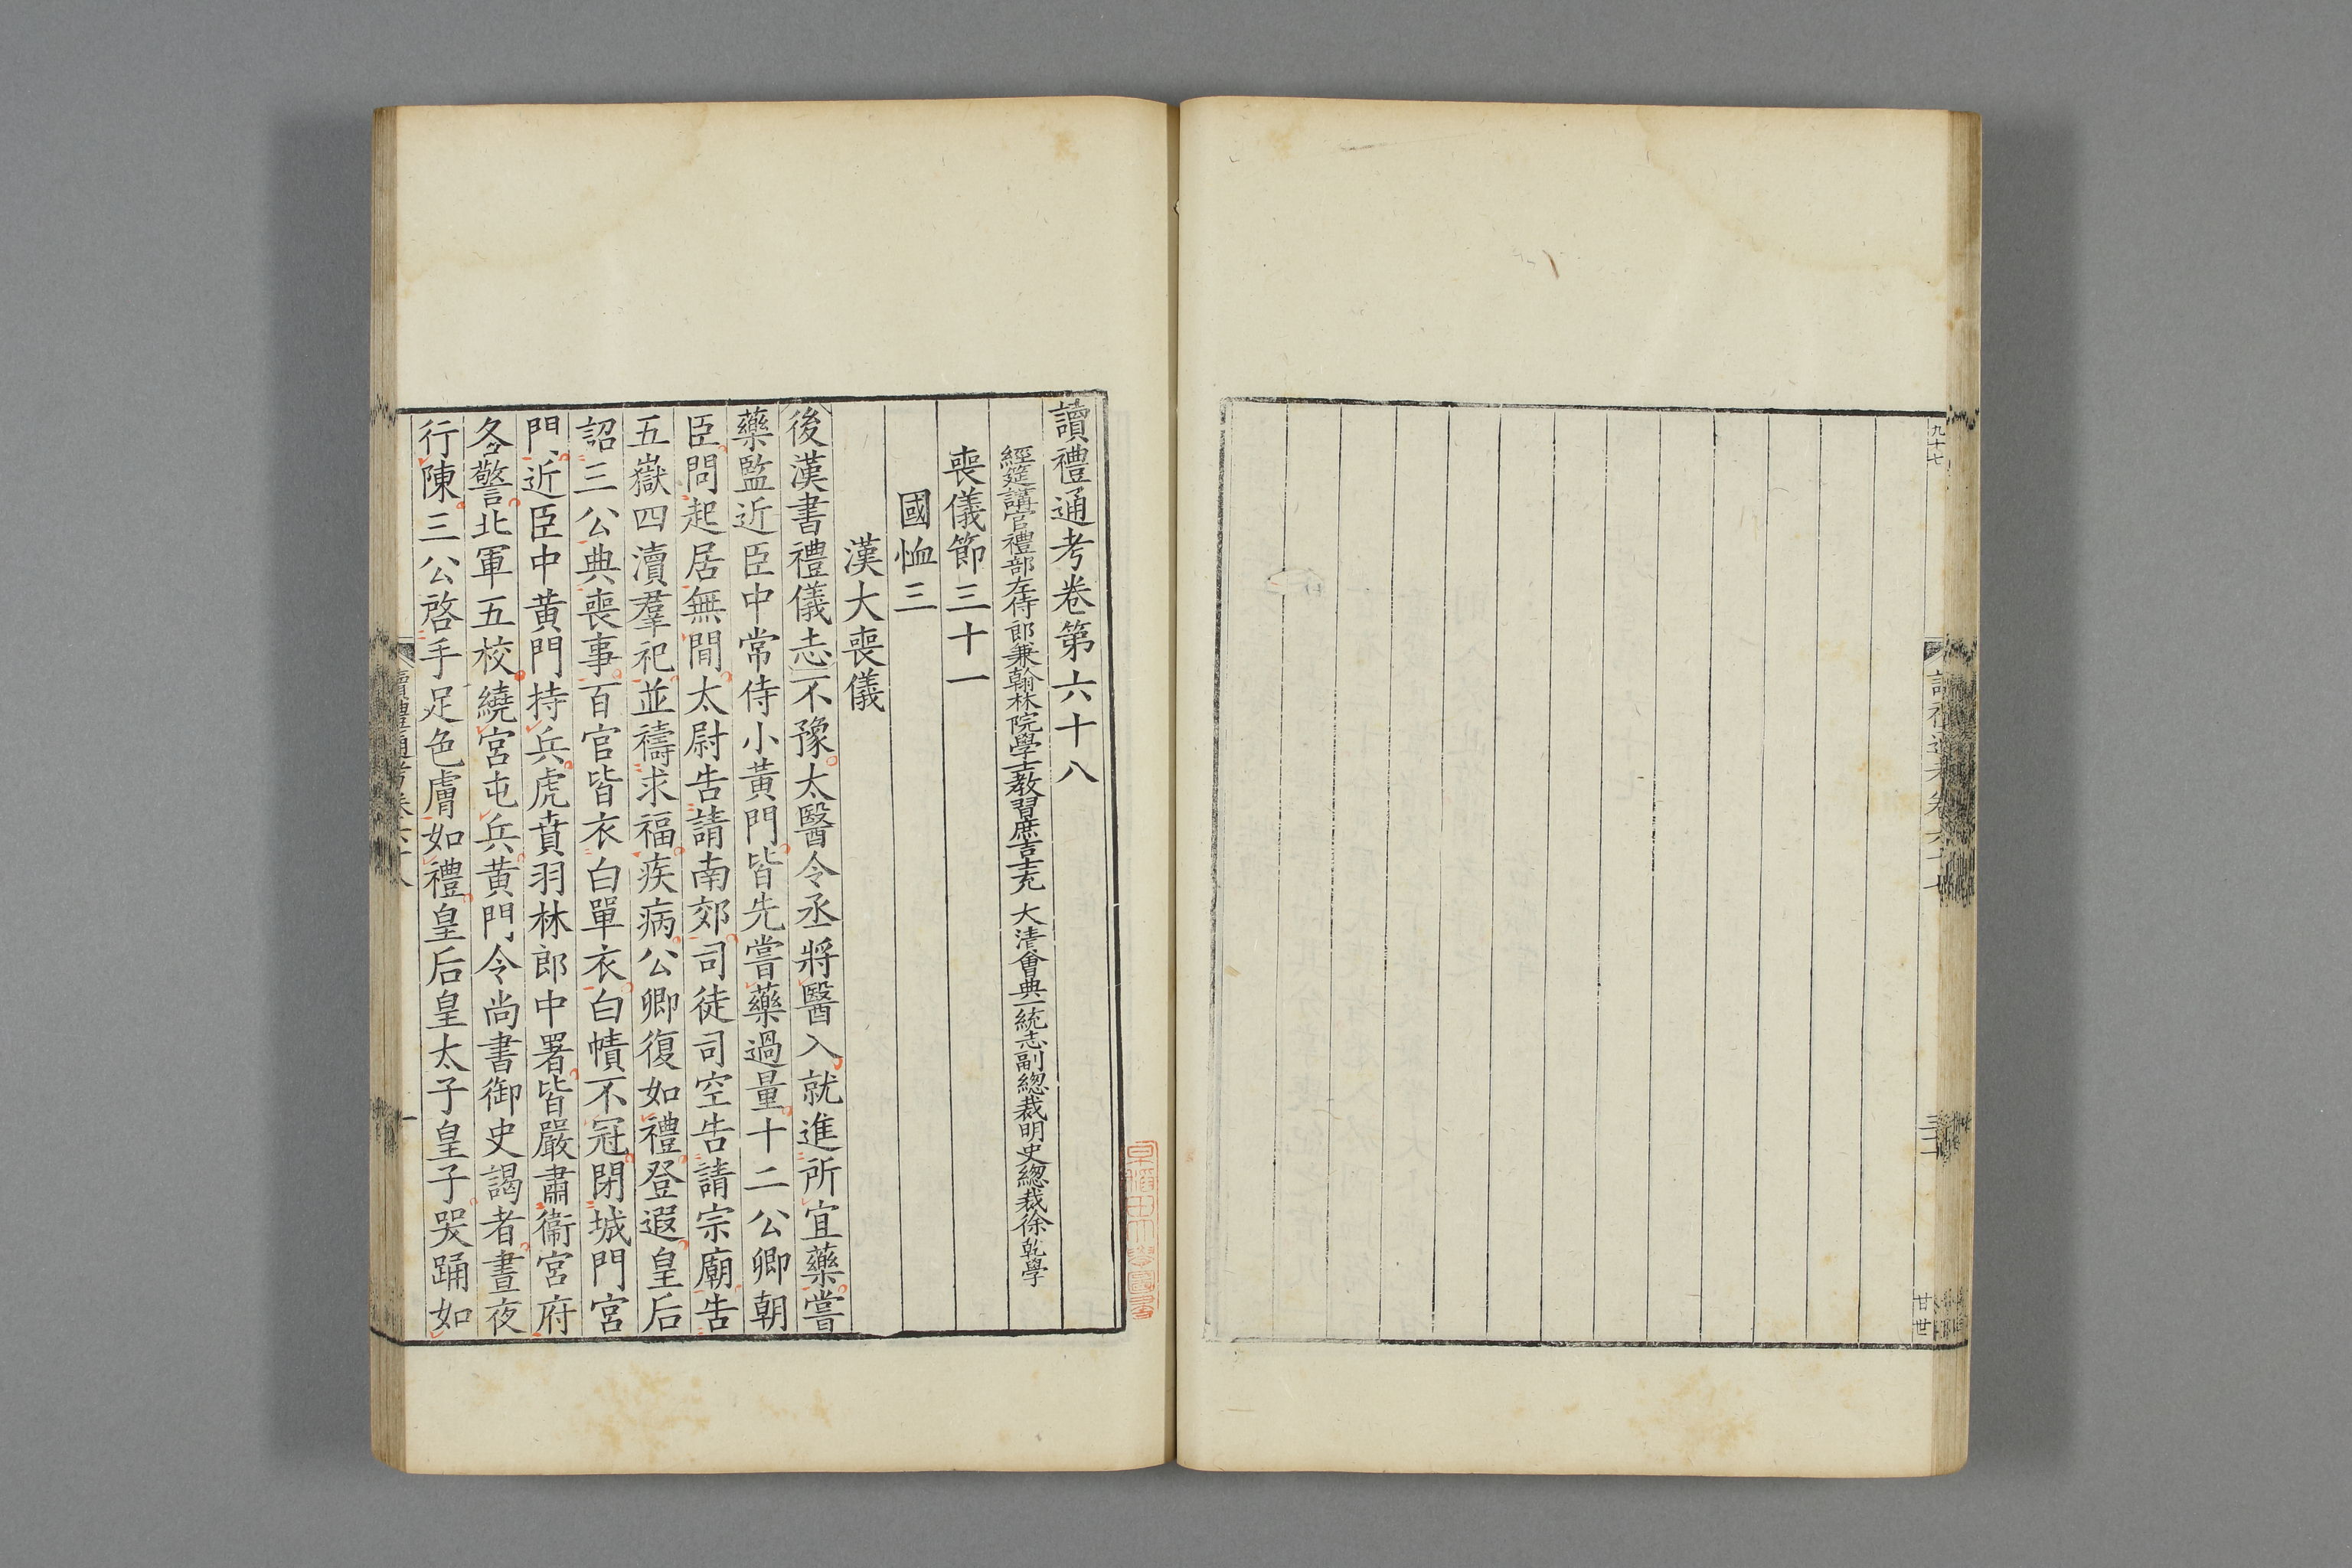 九十七
讀禮通考卷六十七
三十
廿世
讀禮通考卷第六十八
經筵講官禮部左侍郎兼翰林院學士教習庶吉士充 大清會典一統志副總裁明史總裁徐乾學
喪儀節三十一
國恤三
漢大喪儀
後漢書禮儀志不豫太醫令丞將醫入就進所宜藥嘗
藥監近臣中常侍小黃門皆先嘗藥過量十二公卿朝
臣問起居無閒太尉告請南郊司徒司空告請宗廟告
五嶽四瀆羣祀並禱求福疾病公卿復如禮登遐皇后
詔三公典喪事百官皆衣白單衣白幘不冠閉城門宮
門近臣中黃門持兵虎賁羽林郎中署皆嚴肅衞宮府
各警北軍五校繞宮屯兵黃門令尚書御史謁者晝夜
行陳三公啓手足色膚如禮皇后皇太子皇子哭踊如
讀禮通考卷六十八
一